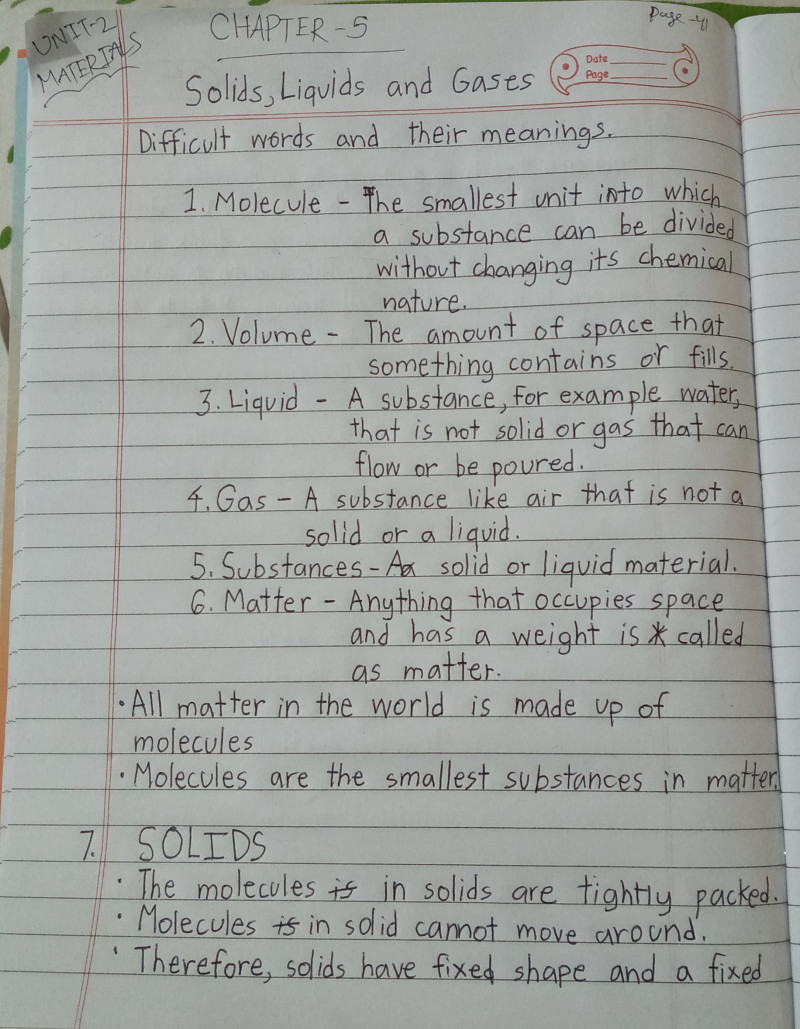 UNIT-2
MATERIALS
CHAPTER-5
Page-41
Solids, Liquids and Gases
Date
Page
Difficult words and their meanings.
1. Molecule - The smallest unit into which
a substance can be divided
without changing its chemical
nature.
2. Volume - The amount of space that
something contains or fills.
3. Liquid - A substance, for example water,
that is not solid or gas that can
flow or be poured.
4. Gas - A substance like air that is not a
solid or a liquid.
5. Substances - A solid or liquid material.
6. Matter - Anything that occupies space
and has a weight is called
as matter.
• All matter in the world is made up of
molecules
• Molecules are the smallest substances in matter.
7. SOLIDS
• The molecules is in solids are tightly packed.
• Molecules is in solid cannot move around.
• Therefore, solids have fixed shape and a fixed